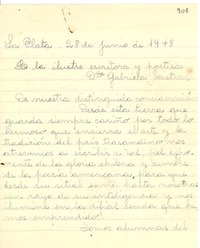 908
La Plata, 28 de junio de 1948
A la ilustre escritora y poetisa
Dña Gabriela Mistral
De nuestra distinguida consideración
Desde esta tierra que
guarda siempre cariño por todo lo
hermoso que encierra el arte y la
tradición del país trasandino nos
atrevemos a escribir a Ud.
de la gloria chilena y
de la poesía americana, para que
desde su sitial envíe hasta nosotras
un rayo de su inteligencia y nos
ilumine en la difícil senda que
hemos emprendido.
Somos alumnas del